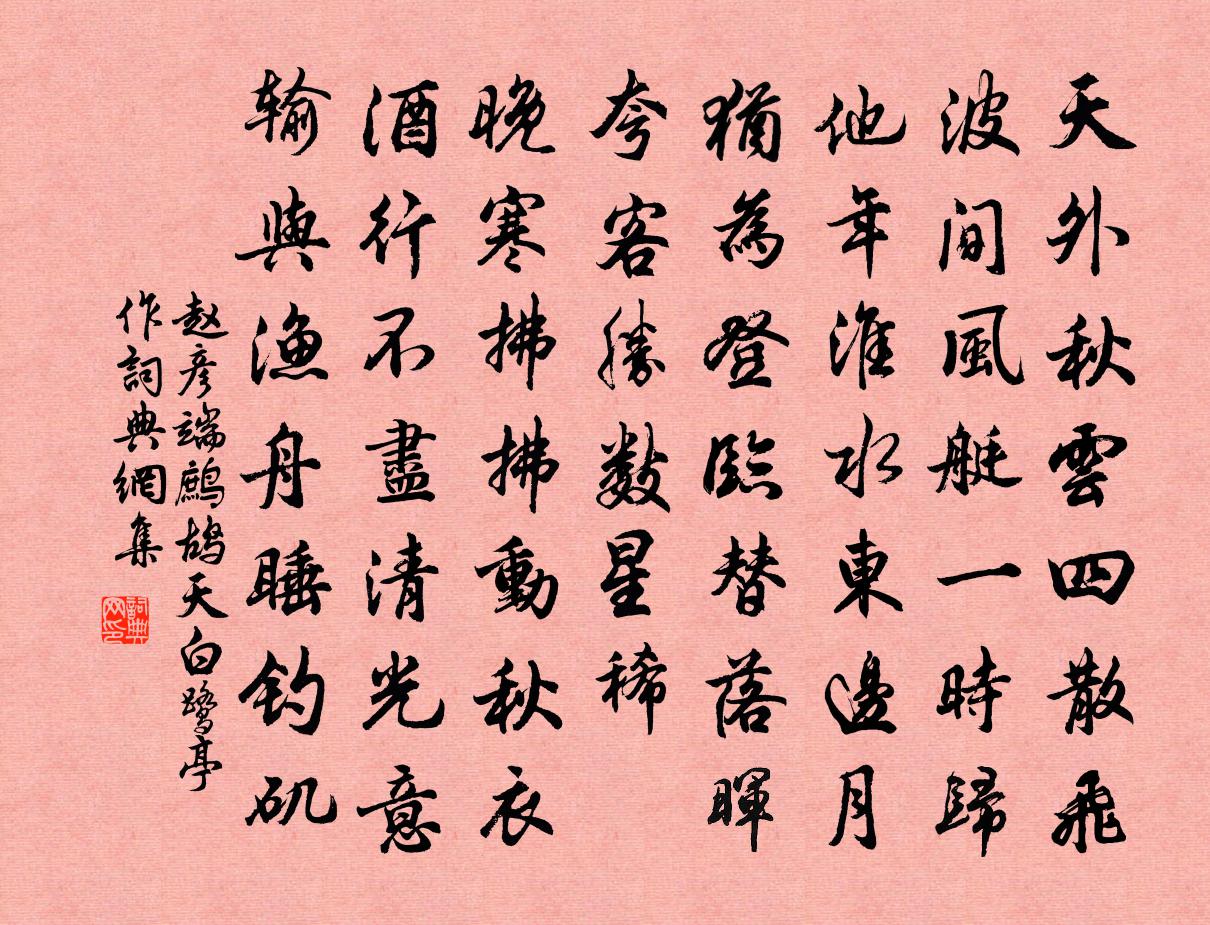 天外秋雲四散飛
波間風艇一時歸
他年淮水東邊月
猶為登臨替落暉
夸客勝數星稀
晚寒拂拂動秋衣
酒行不盡清光意
输與漁舟睡钓矶
赵彥端鷓鴣天白鹭亭
作詞典網集
詞典
网印